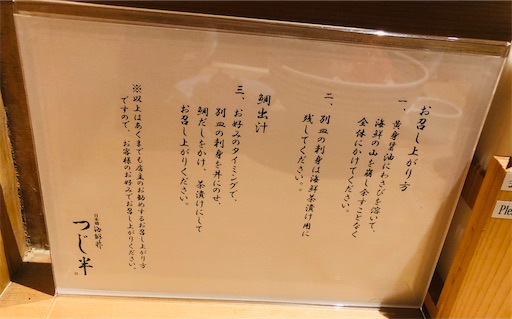 お召し上がり方
一、黄身醤油にわさびを溶いて、
海鮮の山を崩し余すことなく
全体にかけてください。
二、別皿の刺身は海鮮茶漬け用に
残してください。
鯛出汁
三、お好みのタイミングで、
別皿の刺身を丼にのせ、
鯛だしをかけ、茶漬けにして
お召し上がりください。
※以上はあくまでも店主のお勧めするお召し上がり方
ですので、お客様のお好みでお召し上がりください。
日本橋 海鮮丼
つじ半
Ple